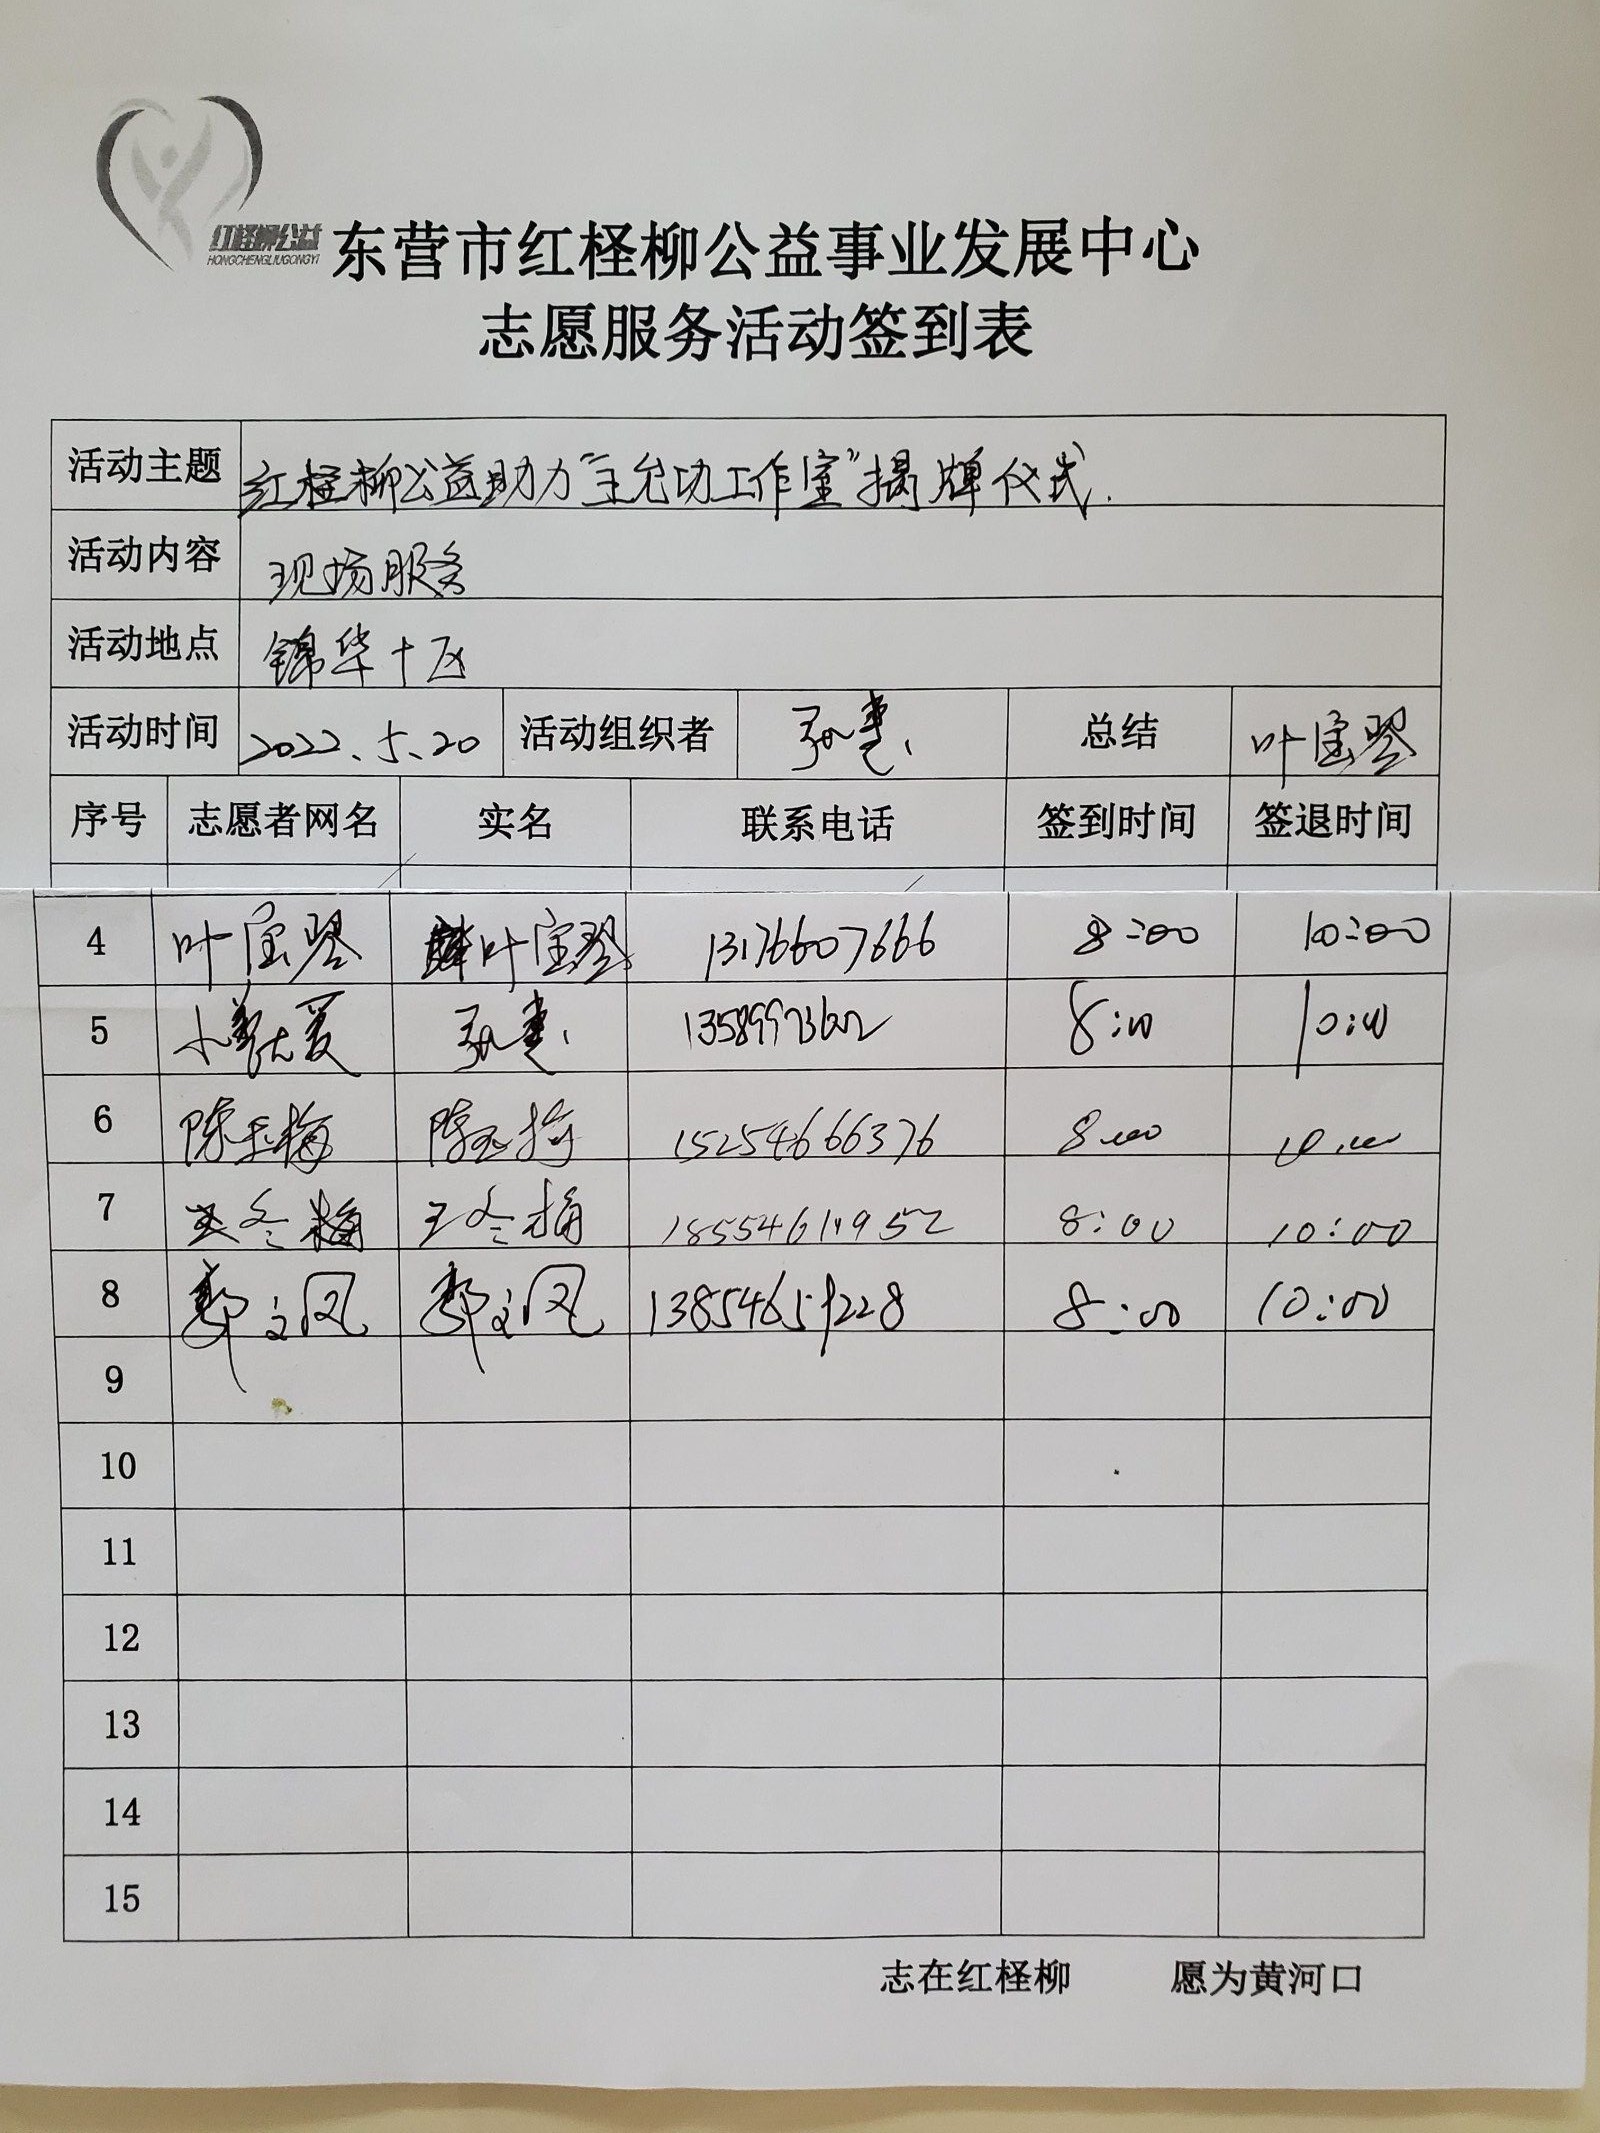 红柽柳公益
HONGCHENGLIUGONGYI
东营市红柽柳公益事业发展中心
志愿服务活动签到表
活动主题 红柽柳公益助力“王允功工作室”揭牌仪式.
活动内容 现场服务
活动地点 锦华十区
活动时间 2022.5.20 活动组织者 总结 叶宝琴
序号 志愿者网名 实名 联系电话 签到时间 签退时间
4 叶宝琴 叶宝琴 13176607666 8:00 10:00
5 小美大爱 8:00 10:00
6 陈玉梅 陈玉梅 15254666376 8:00 10:00
7 王冬梅 王冬梅 8:00 10:00
8 郭文凤 郭文凤 13854659228 8:00 10:00
9
10
11
12
13
14
15
志在红柽柳 愿为黄河口